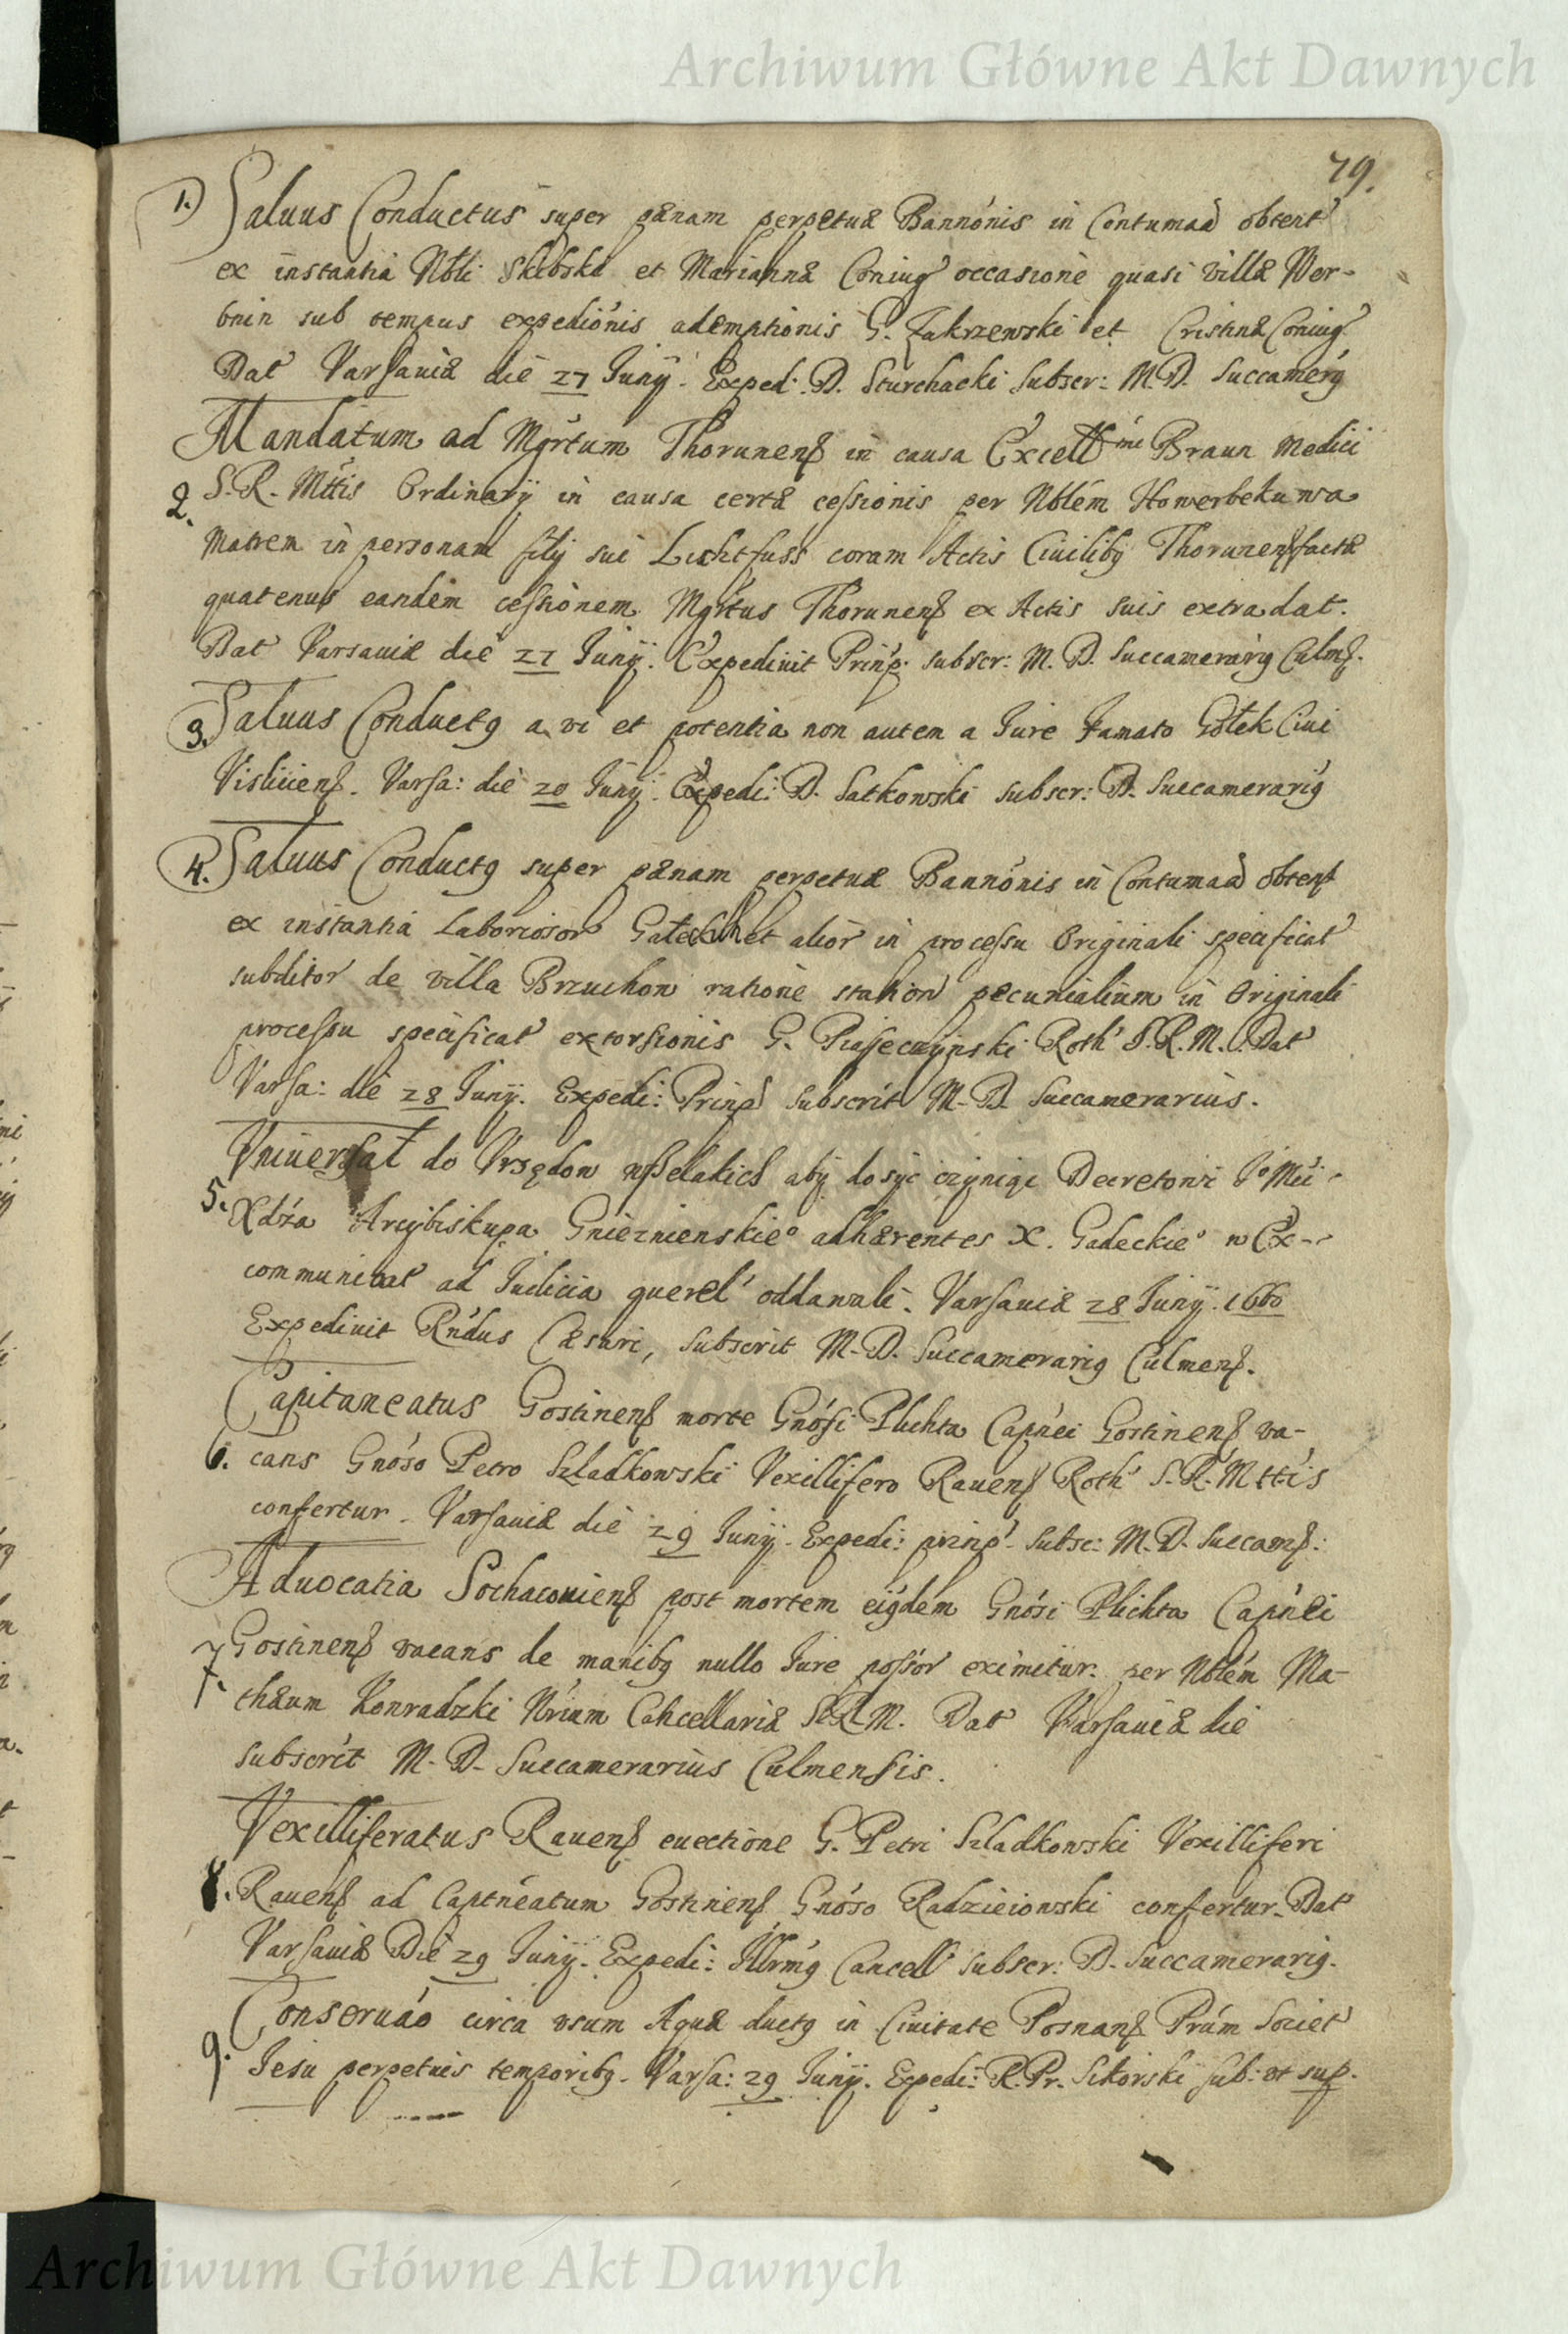 Archiwum Główne Akt Dawnych
79.
1. Saluus Conductus super pænam perpetuæ Bannónis in Contumaã obtent
ex instantia Nbli Skibski et Mariannæ Coniug occasione quasi villæ Wer-
bnin sub tempus expediónis ademptionis G. Zakrzewski et Cristinæ Coniug
Dat Varsauiæ die 27 Junÿ. Exped: D. Sturchacki Subscr: M. D. Succamerg
Mandatum ad Mgrtum Thorunens in causa Excellmi Braun Medici
2. S. R. Mttis Ordinarÿ in causa certæ cessionis per Nblem Howerbekuwa
Matrem in personam filÿ sui Lichtfuss coram Actis Ciuilibg Thorunens factæ
quatenus eandem cessionem Mgrtus Thorunens ex Actis suis extradat.
Dat Varsauiæ die 27 Junÿ. Expediuit Prinp. subscr: M. D. Succamerarig Culms.
3. Saluus Conductg a vi et potentia non autem a Jure Famato Gołek Ciui
Visliciens. Varsa: die 20 Junÿ. Expedi: D. Satkowski subscr: D. Succamerarig
4. Saluus Conductg super pænam perpetuæ Bannónis in Contumaã obtent
ex instantia Laboriosor et alior in processu Originali specificat
subditor de villa Brzuchow ratione station pecunialium in Originali
processu specificat extorsionis G. Piaseczynski Roth S. R. M. Dat
Varsa: die 28 Junÿ. Expedi: Prinp subscrit M. D. Succamerarius.
Vniuersał do Vrzędow wszelakich aby dosyc czyniąc Decretowi Jo Mci
5. Xdźa Arcybiskupa Gnieznienskieo adhærentes X. Gadeckieo w Ex--
communicat ad Judicia querel oddawali. Varsauiæ 28 Junÿ. 1660
Expediuit Rndus Cæsari, subscrit M. D. Succamerarig Culmens.
Capitaneatus Gostinens morte Gnosi Plichta Capnei Gostinens va-
6. cans Gnoso Petro Szladkowski Vexillifero Rauens Roth S. R. Mttis
confertur. Varsauiæ die 29 Junÿ. Expedi: prinp. subsc: M. D. Succams:
Aduocatia Sochaciouiens post mortem eigdem Gnosi Plichta Capnei
7. Gostinens vacans de manibg nullo Jure possor eximitur. per Nblem Ma-
thæum Konradzki Nrium Cancellariæ S. R. M. Dat Varsauiæ die
subscrit M. D. Succamerarius Culmensis.
Vexilliferatus Rauens euectione G. Petri Szladkowski Vexilliferi
8. Rauens ad Captneatum Gostinens Gnoso Radzieiowski confertur. Dat
Varsauiæ Die 29 Junÿ. Expedi: Illrmg Cancell subscr: D. Succamerarig.
Conseruáo circa vsum Aquæ ductg in Ciuitate Posnans Prum Societ
9. Jesu perpetuis temporibg. Varsa: 29 Junÿ. Expedi: R. Pr. Sikorski sub: vt sup.
Archiwum Główne Akt Dawnych